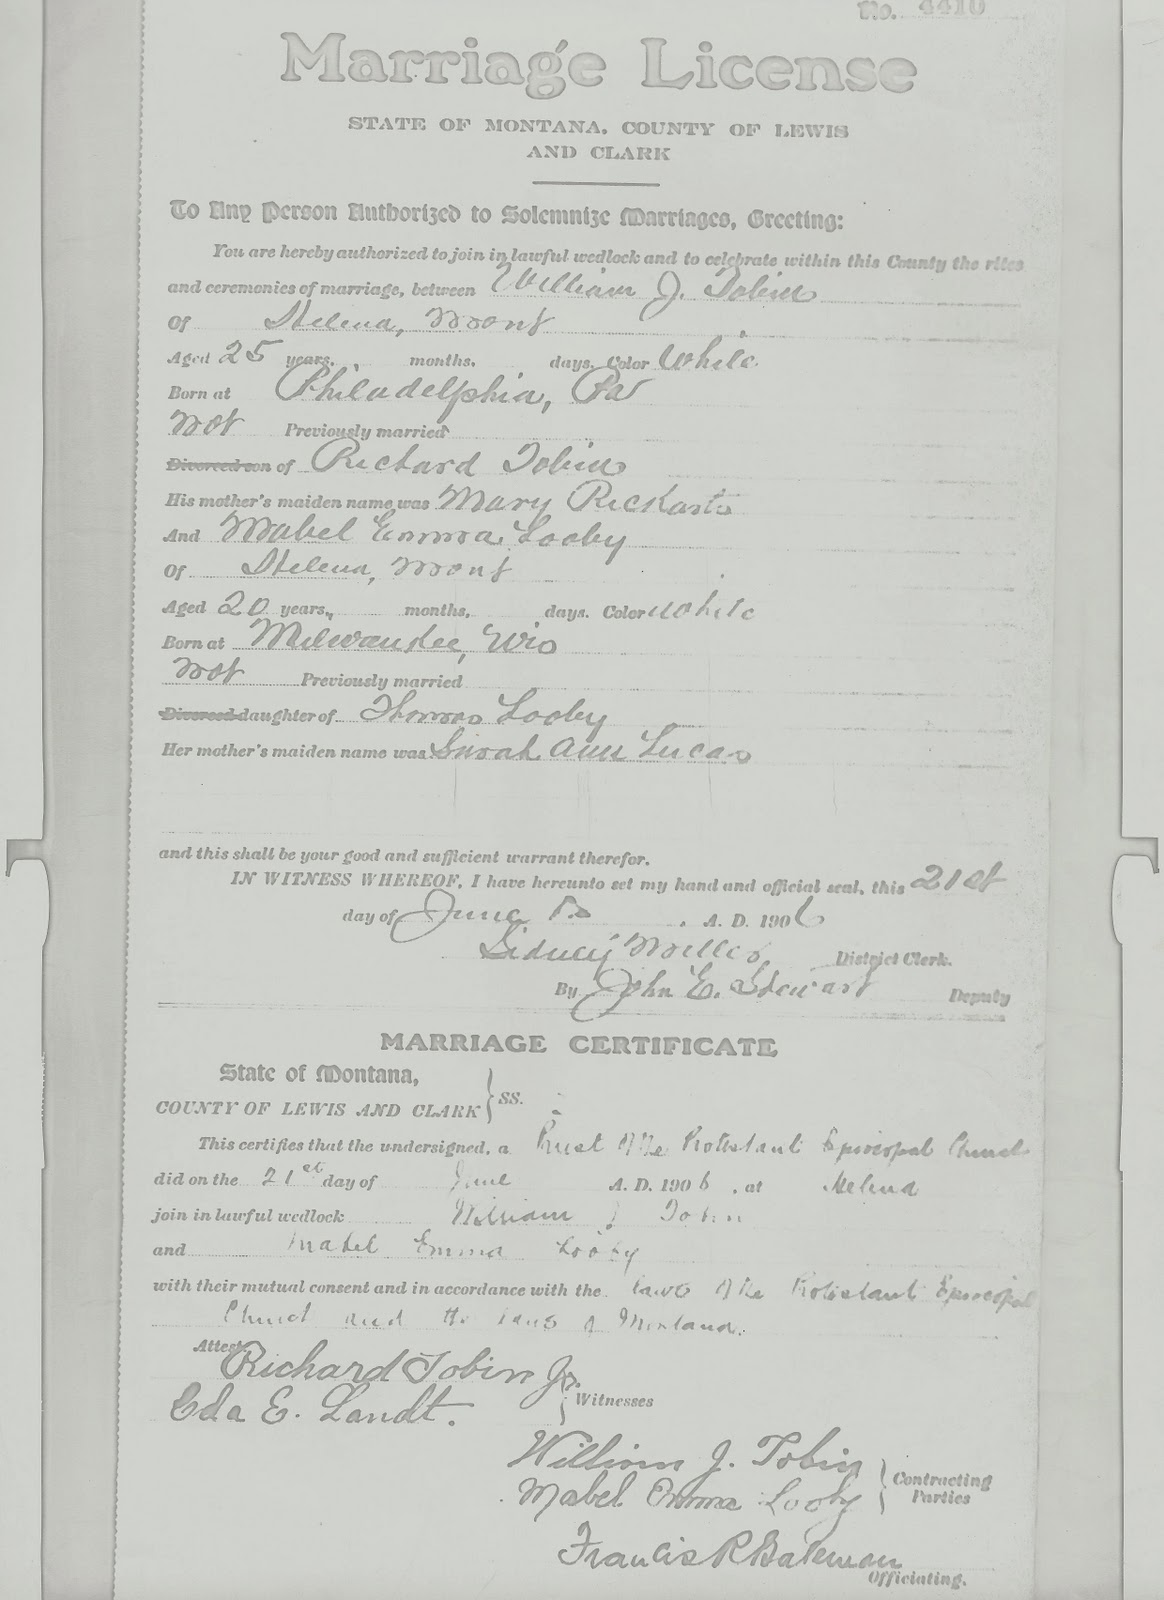 No. 4410
Marriage License
STATE OF MONTANA, COUNTY OF LEWIS
AND CLARK
To Any Person Authorized to Solemnize Marriages, Greeting:
You are hereby authorized to join in lawful wedlock and to celebrate within this County the rites
and ceremonies of marriage, between William J. Tobin
Of Helena, Mont
Aged 25 years, months, days. Color White
Born at Philadelphia, Pa
Not Previously married
Divorced son of Richard Tobin
His mother's maiden name was Mary
And Mabel Emma Looby
Of Helena, Mont
Aged 20 years, months, days. Color White
Born at Milwaukee, Wis
Not Previously married
Divorced daughter of Thomas Looby
Her mother's maiden name was Sarah Ann Lucas
and this shall be your good and sufficient warrant therefor.
IN WITNESS WHEREOF, I have hereunto set my hand and official seal, this 21st
day of June A. D. 1906
Sidney Miller District Clerk.
By John E. Stewart Deputy
MARRIAGE CERTIFICATE
State of Montana,
COUNTY OF LEWIS AND CLARK } SS.
This certifies that the undersigned, a Priest of the Protestant Episcopal Church
did on the 21st day of June A. D. 1906, at Helena
join in lawful wedlock William J Tobin
and Mabel Emma Looby
with their mutual consent and in accordance with the laws of the Protestant Episcopal
Church and the laws of Montana.
Attest
Richard Tobin Jr.
Eda E. Landt. } Witnesses
William J. Tobin
Mabel Emma Looby } Contracting Parties
Francis R Bateman
Officiating.